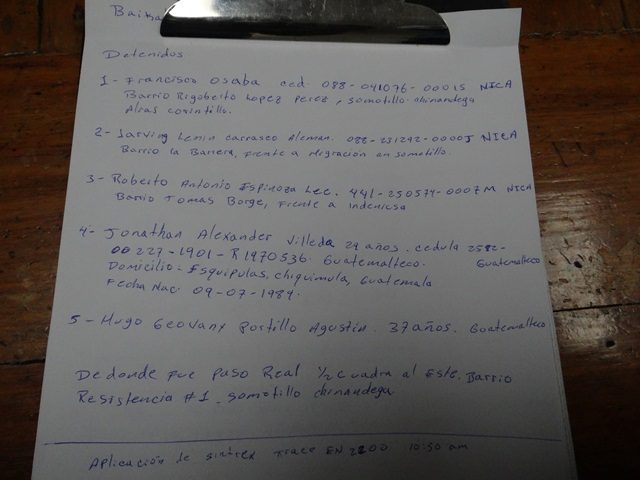 Detenidos
1- Francisco Osaba ced. 088-041076-00015 NICA
Barrio Rigoberto Lopez Perez, somotillo chinandega
Alias
2- Lenin carrasco Aleman. 088-231292-0000J NICA
Barrio la Barrera, Frente a Migración en somotillo.
3- Roberto Antonio Espinoza Lee. 441-250574-0007M NICA
Barrio Tomas Borge, Frente a
4- Jonathan Alexander Villeda 29 años. cedula 2582-
00227-1901-R1970536. Guatemalteco. Guatemalteco
Domicilio: Esquipulas, chiquimula, Guatemala
Fecha Nac: 09-07-1984.
5- Hugo Geovany Portillo Agustin. 37 años. Guatemalteco
De donde fue Paso Real 1/2 cuadra al Este. Barrio
Resistencia #1. somotillo chinandega
Aplicación de Trace EN 10:50 am